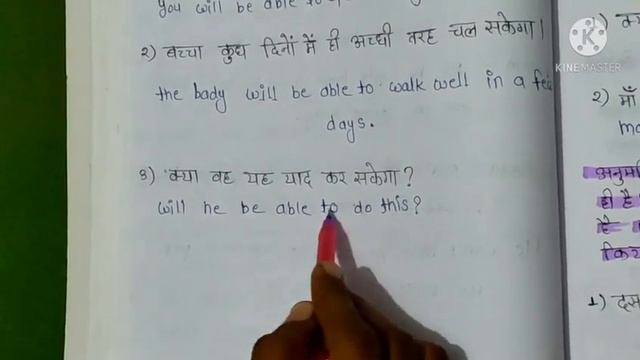 You will be able to
२) बच्चा कुछ दिनों में ही अच्छी तरह चल सकेगा।
the bady will be able to walk well in a few
days.
३) क्या वह यह याद कर सकेगा?
will he be able to do this?
१)
२) माँ
ma
अनुम
ही है
है
किय
१) दस
KINEMASTER